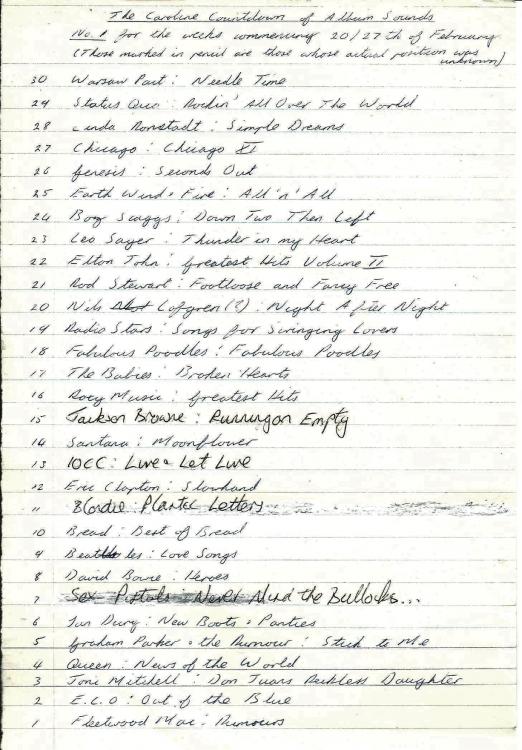 The Caroline Countdown of Album Sounds
No. 1 for the weeks commencing 20/27th of February
(Those marked in pencil are those whose actual position was
unknown)
30 Warsaw Pact : Needle Time
29 Status Quo : Rockin' All Over The World
28 Linda Ronstadt : Simple Dreams
27 Chicago : Chicago XI
26 Genesis : Seconds Out
25 Earth Wind & Fire : All 'n' All
24 Boz Scaggs : Down Two Then Left
23 Leo Sayer : Thunder in my Heart
22 Elton John : Greatest Hits Volume II
21 Rod Stewart : Footloose and Fancy Free
20 Nils Lofgren (?) : Night After Night
19 Radio Stars : Songs for Swinging Lovers
18 Fabulous Poodles : Fabulous Poodles
17 The Babies : Broken Hearts
16 Roxy Music : Greatest Hits
15 Jackson Browne : Running on Empty
14 Santana : Moonflower
13 10CC : Live & Let Live
12 Eric Clapton : Slowhand
11 Blondie : Plastic Letters
10 Bread : Best of Bread
9 Beatles : Love Songs
8 David Bowie : Heroes
7 Sex Pistols : Never Mind the Bullocks...
6 Ian Dury : New Boots & Panties
5 Graham Parker & the Rumour : Stick to Me
4 Queen : News of the World
3 Joni Mitchell : Don Juans Reckless Daughter
2 E.L.O : Out of the Blue
1 Fleetwood Mac : Rumours